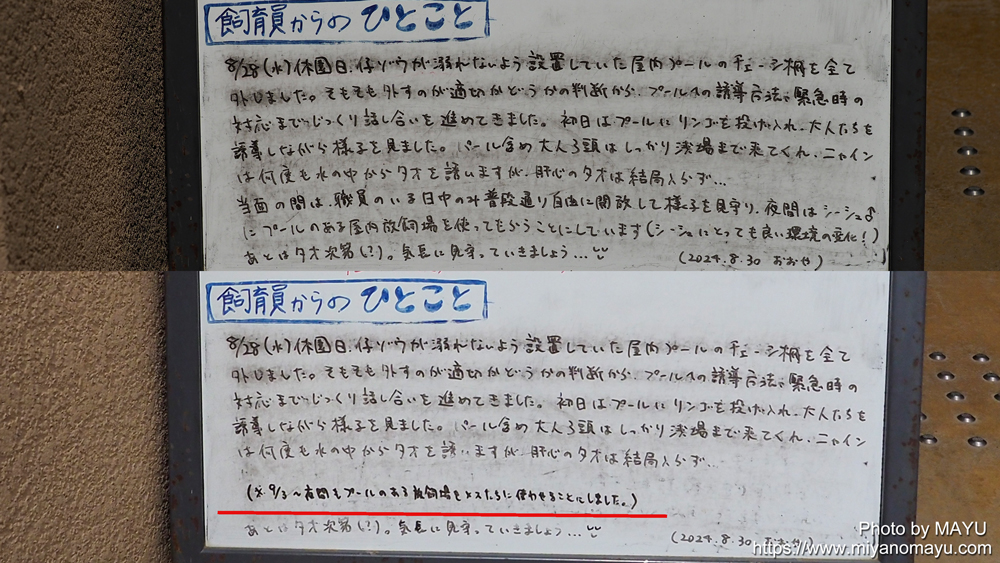 飼育員からのひとこと
8/28(水)休園日、仔ゾウが溺れないよう設置していた屋内プールのチェーン柵を全て
外しました。そもそも外すのが適切かどうかの判断から、プールへの誘導方法、緊急時の
対応までじっくり話し合いを進めてきました。初日はプールにリンゴを投げ入れ、大人たちを
誘導しながら様子を見ました。パール含め大人3頭はしっかり深場まで来てくれ、ニャイン
は何度も水の中からタオを誘いますが、肝心のタオは結局入らず…
当面の間は、職員のいる日中のみ普段通り自由に開放して様子を見守り、夜間はシーシュ♂
にプールのある屋内放飼場を使ってもらうことにしています(シーシュにとっても良い環境の変化!)
あとはタオ次第(!?)。気長に見守っていきましょう…
(2024.8.30 おおや)
飼育員からのひとこと
8/28(水)休園日、仔ゾウが溺れないよう設置していた屋内プールのチェーン柵を全て
外しました。そもそも外すのが適切かどうかの判断から、プールへの誘導方法、緊急時の
対応までじっくり話し合いを進めてきました。初日はプールにリンゴを投げ入れ、大人たちを
誘導しながら様子を見ました。パール含め大人3頭はしっかり深場まで来てくれ、ニャイン
は何度も水の中からタオを誘いますが、肝心のタオは結局入らず…
(※9/3~夜間もプールのある放飼場をメスたちに使わせることにしました。)
あとはタオ次第(!?)。気長に見守っていきましょう…
(2024.8.30 おおや)
Photo by MAYU
https://www.miyanomayu.com